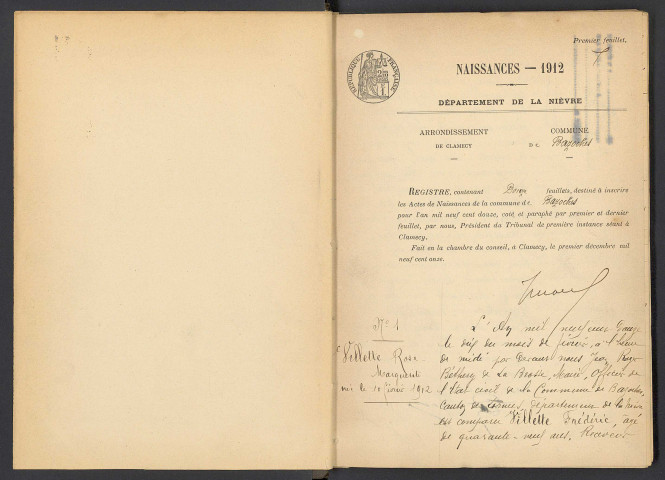 Premier feuillet.
RÉPUBLIQUE FRANÇAISE
NAISSANCES — 1912
DÉPARTEMENT DE LA NIÈVRE
ARRONDISSEMENT
DE CLAMECY
COMMUNE
DE Bazoches
REGISTRE, contenant feuillets, destiné à inscrire
les Actes de Naissances de la commune de Bazoches
pour l'an mil neuf cent douze, coté et paraphé par premier et dernier
feuillet, par nous, Président du Tribunal de première instance séant à
Clamecy.
Fait en la chambre du conseil, à Clamecy, le premier décembre mil
neuf cent onze.
N° 1
Villette Rosa
Marguerite
née le 10 février 1912
L'An mil neuf cent douze
le dix du mois de février, à l'heure
de midi par devant nous Jean
de La Brosse, Maire, Officier de
l'Etat civil de la Commune de Bazoches,
Canton de département de la Nièvre
est comparu Villette Frédéric, âgé
de quarante-neuf ans,